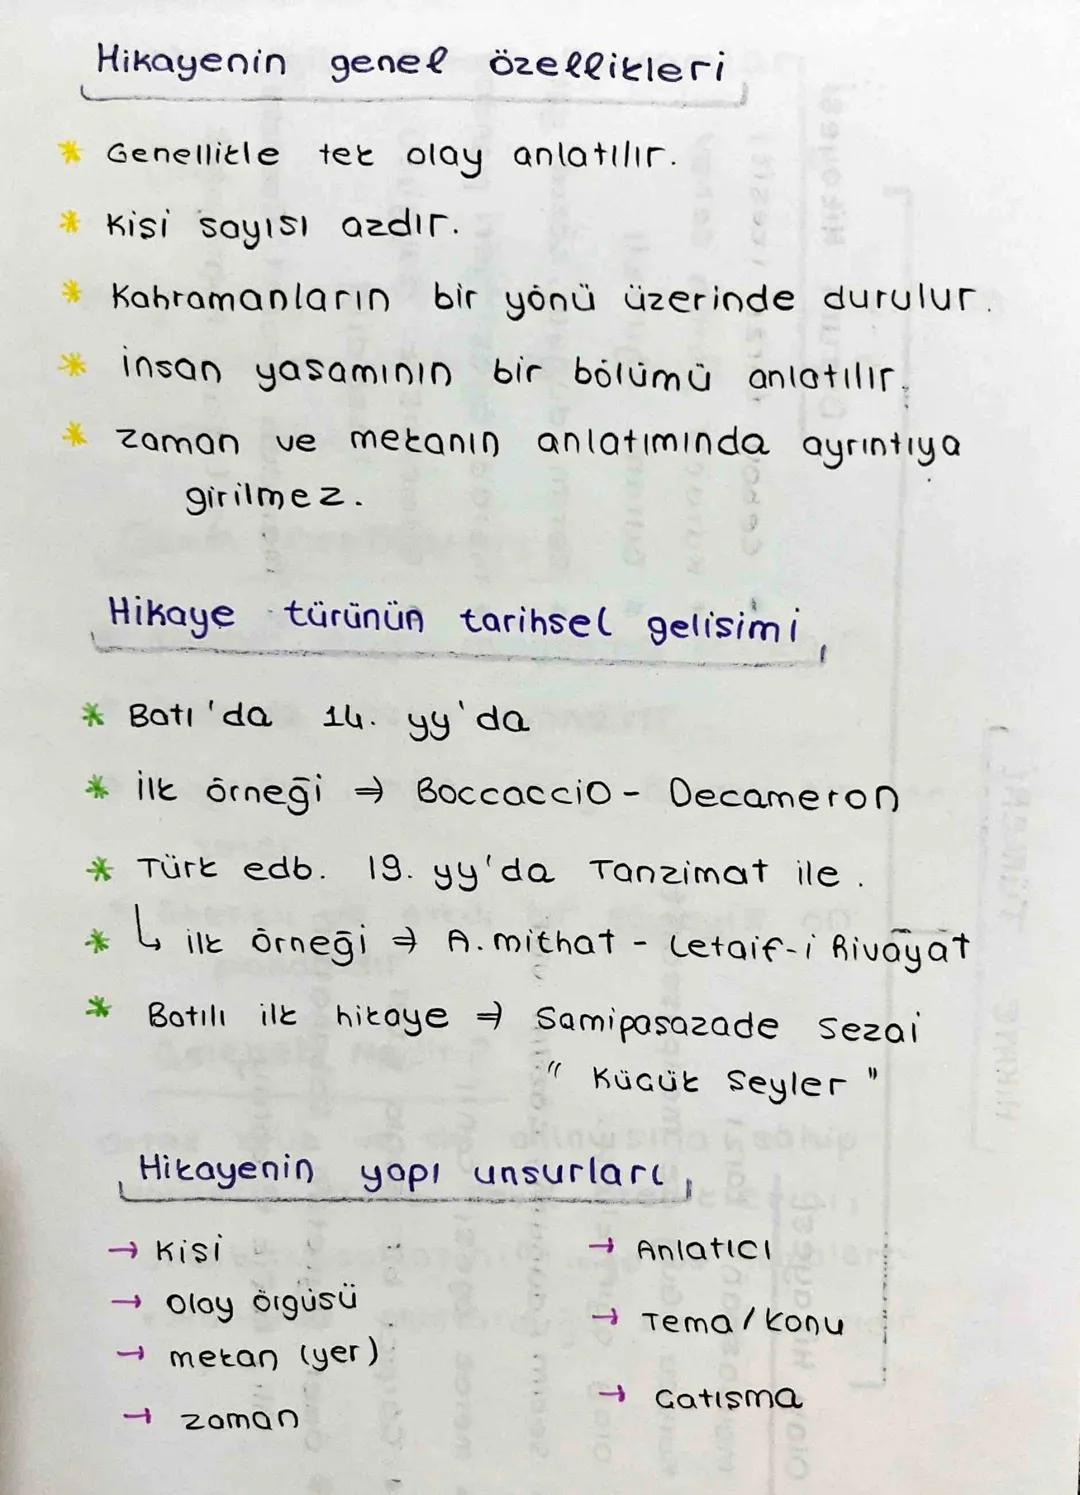 Hikayenin genel özellikleri
* Genellikle tek olay anlatılır.
* Kişi sayısı azdır.
* Kahramanların bir yönü üzerinde durulur.
* insan yaşamının bir bölümü anlatılır.
* zaman ve mekanın anlatımında ayrıntıya
girilmez.
Hikaye türünün tarihsel gelişimi
* Batı'da 14. yy'da
* İlk örneği ⇒ Boccaccio - Decameron
* Türk edb. 19. yy'da Tanzimat ile.
* ↳ ilk örneği ⇒ A. mithat - Letaif-i Rivāyāt
* Batılı ilk hikaye ⇒ Samipaşazade Sezai
" Küçük Şeyler "
Hikayenin yapı unsurları
→ Kişi
→ Olay örgüsü
→ mekan (yer)
→ zaman
→ Anlatıcı
→ Tema / Konu
→ Çatışma